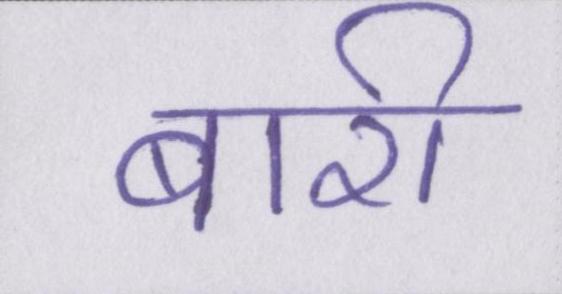 बारी